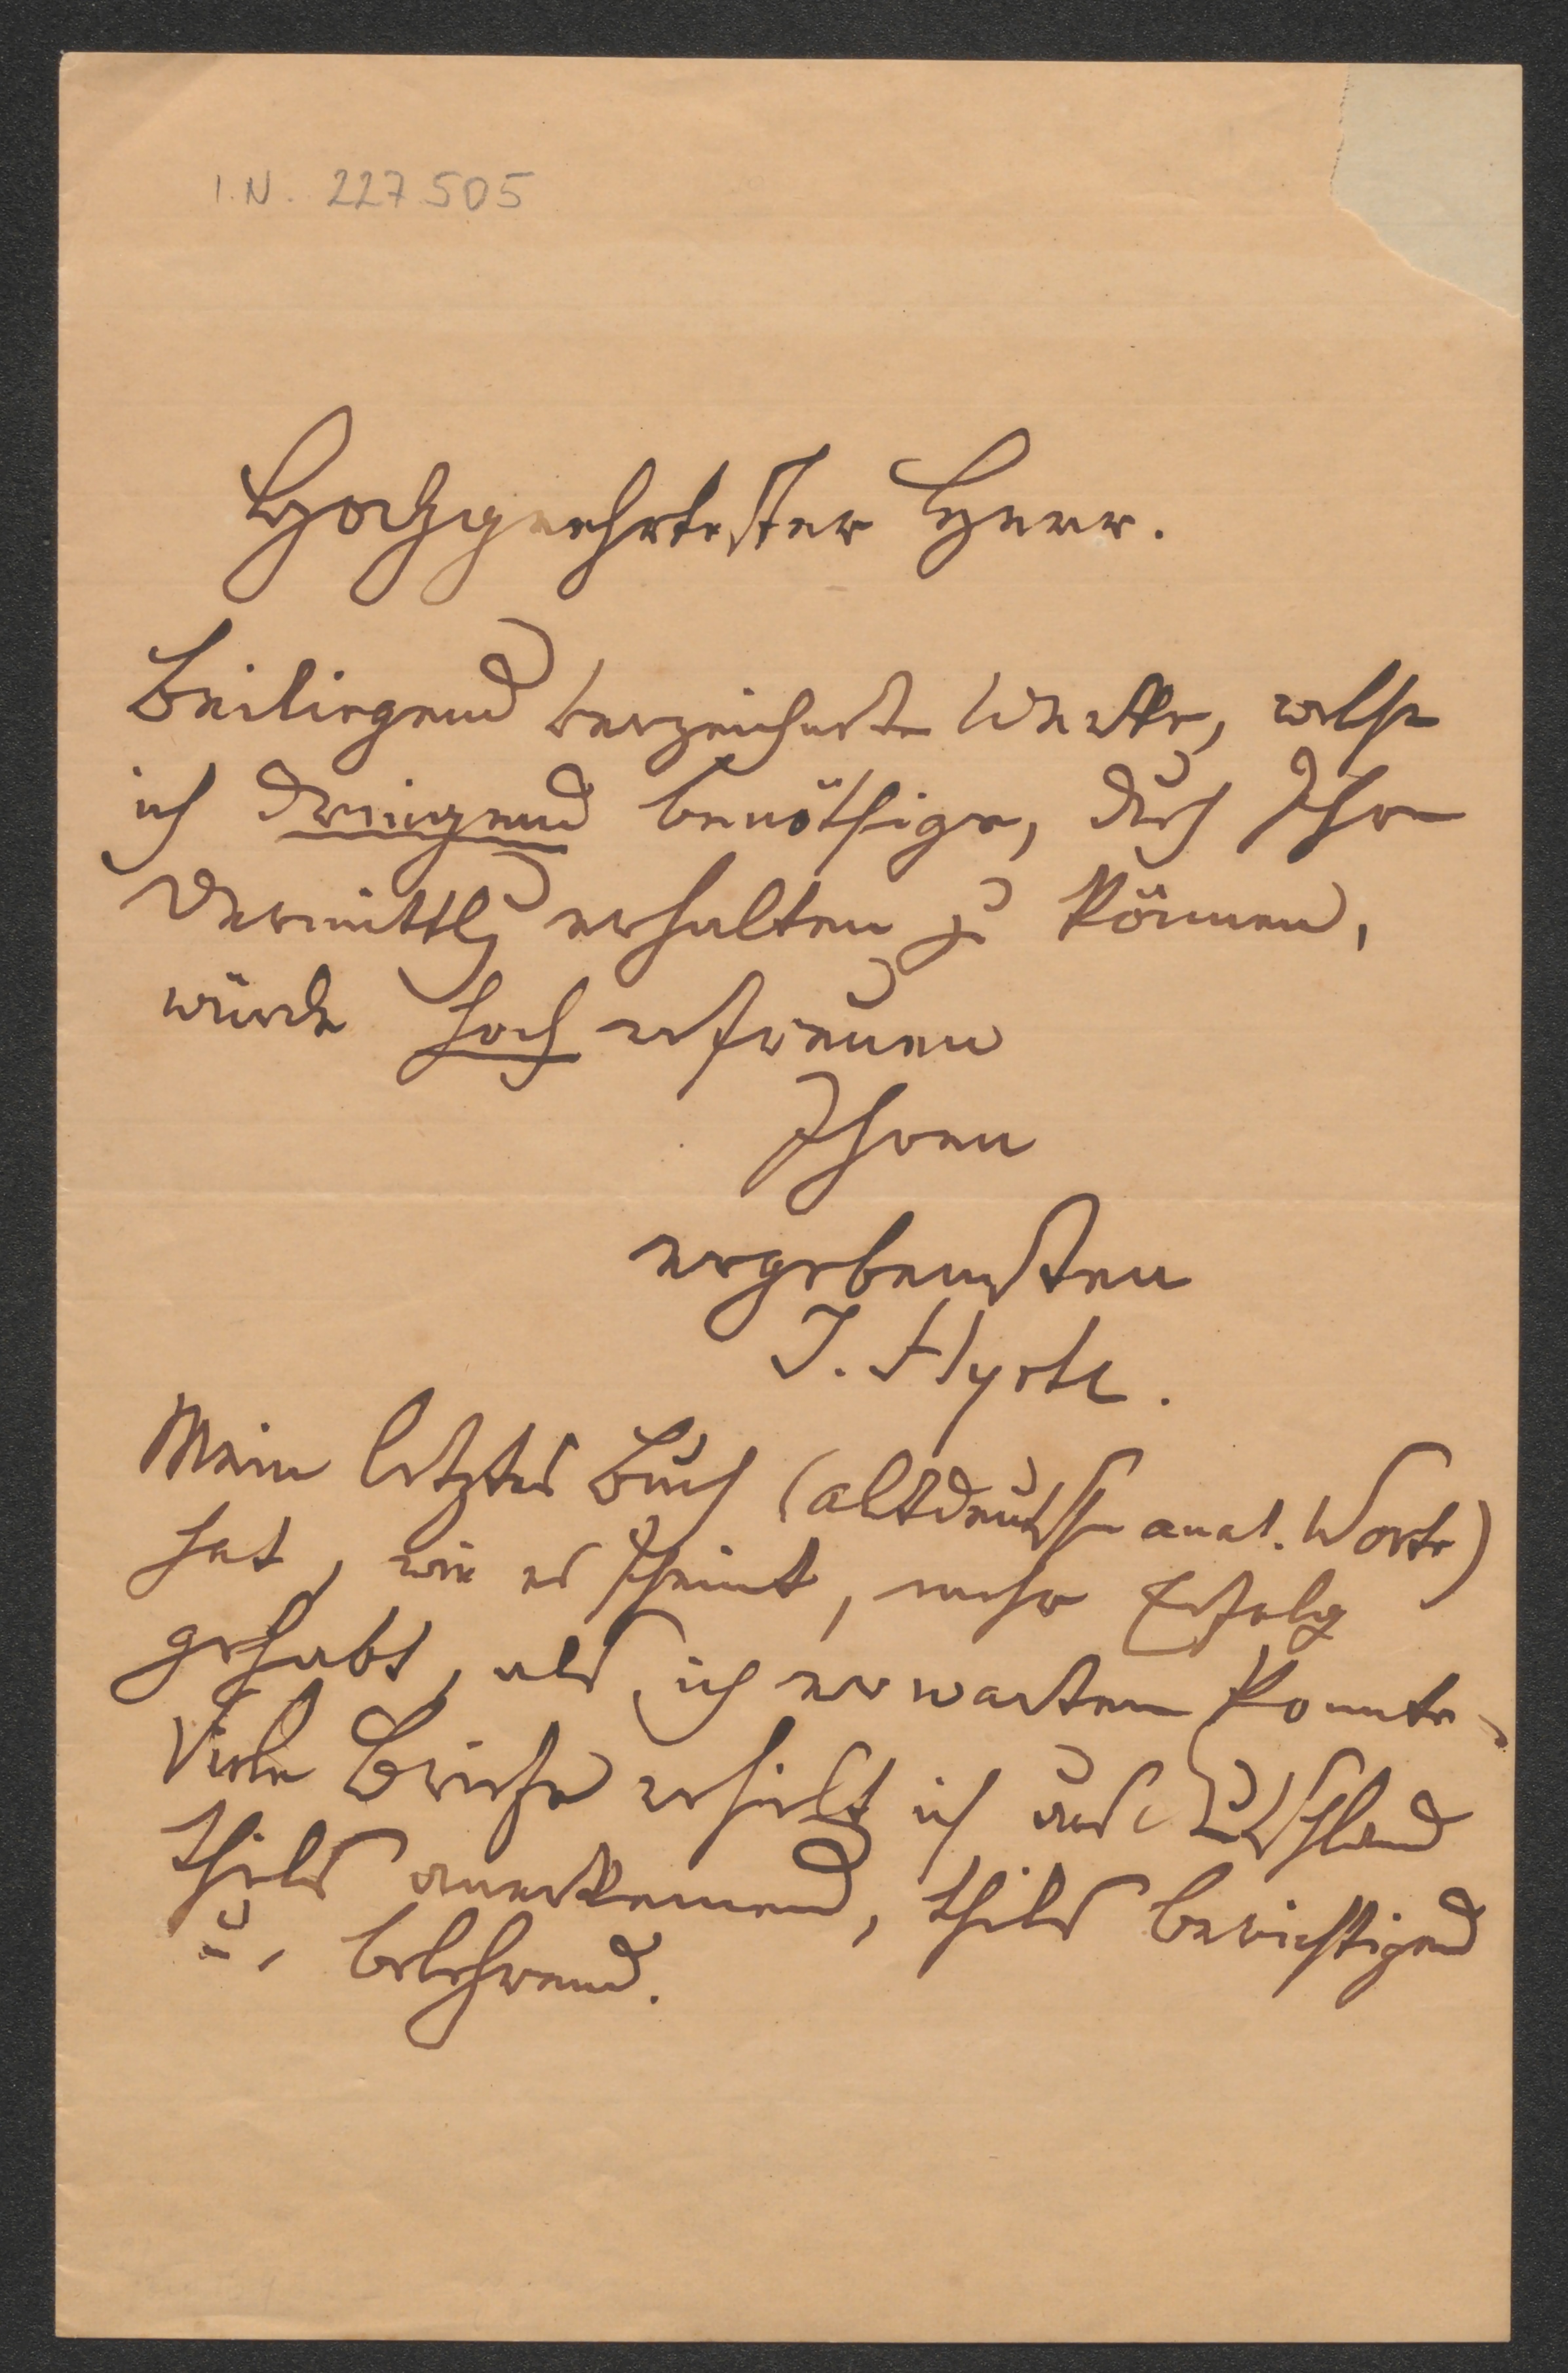 I.N. 227.505
Hochgeehrtester Herr.
Beiliegend verzeichnete Werke, welche
ich dringend benöthige, durch Ihre
Vermittlg erhalten zu können,
würde hoch erfreuen
Ihren
ergebensten
J. Hyrtl.
Mein letztes Buch (altdeutsche anat. Worte)
hat, wie es scheint, mehr Erfolg
gehabt, als ich erwarten konnte.
Viele Briefe erhielt ich aus Dtschland
theils anerkennend, theils berichtigend
u. belehrend.